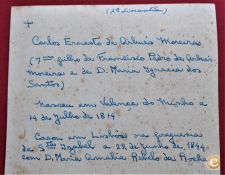 (1º Quinalia)
+
Carlos Ernesto de Arbués Moreira
(7º filho de Francisco Pedro de Arbués
Moreira e de D. Maria Ignacia dos
Santos)
Nasceu em Valença do Minho a
14 de julho de 1814
Casou em Lisboa na freguesia
de S.ta Izabel a 28 de junho de 1844
com D. Maria Amalia Rebelo da Rocha